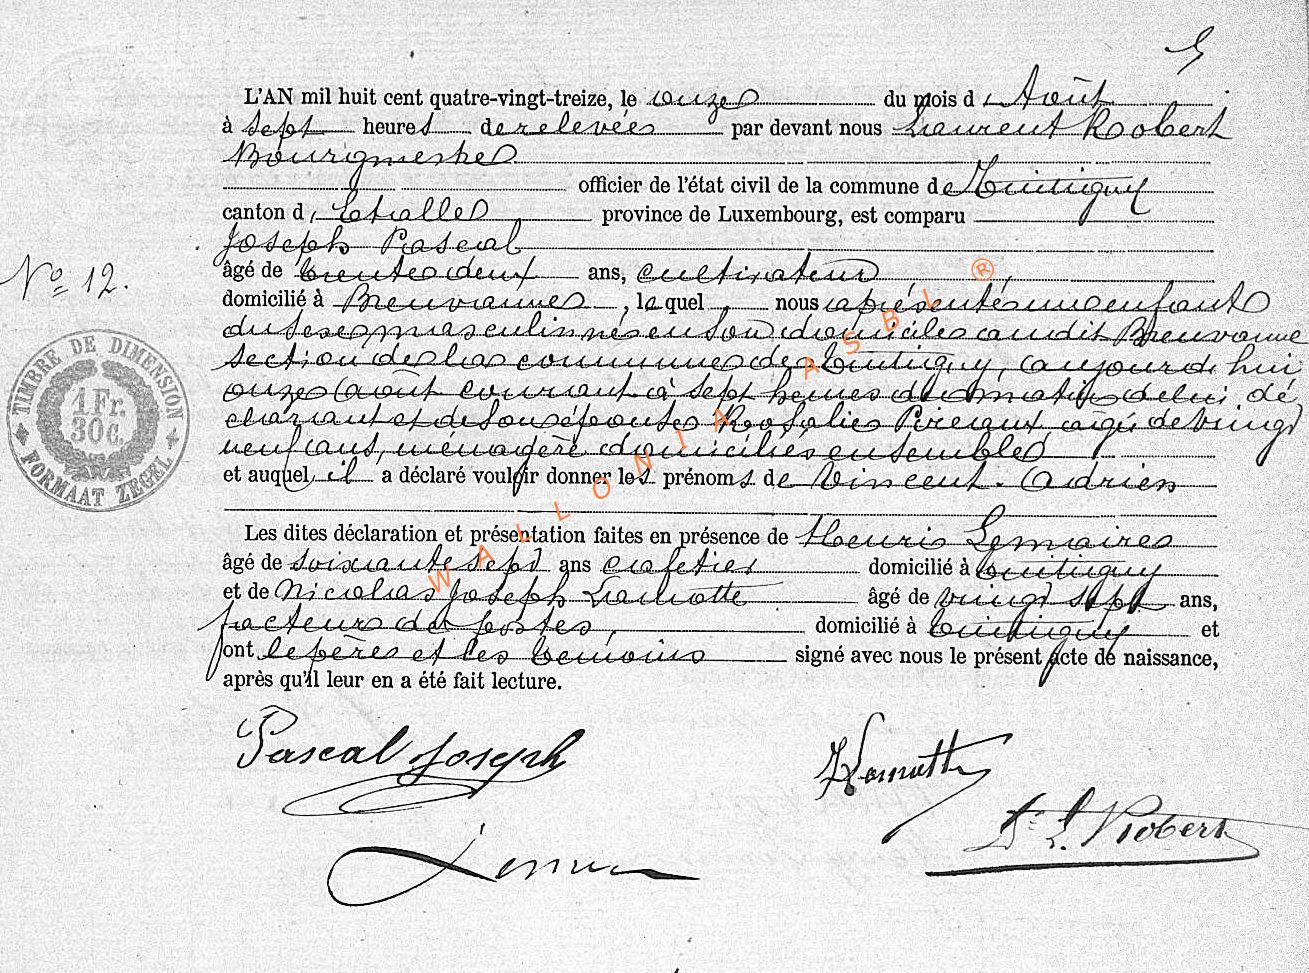 5
L'AN mil huit cent quatre-vingt-treize, le onze du mois d'Août
à sept heures de relevée par devant nous Laurent Robert
Bourgmestre
officier de l'état civil de la commune de Tintigny
canton d'Etalle province de Luxembourg, est comparu
Joseph Pascal
N° 12.
âgé de trente deux ans, cultivateur,
domicilié à Breuvanne, lequel, nous a présenté un enfant
du sexe masculin né en son domicile audit Breuvanne
section de la commune de Tintigny, aujourd'hui
onze août courant à sept heures du matin de lui dé
clarant et de son épouse Rosalie Pireaux agée de vingt
neuf ans, ménagère domiciliés ensemble
et auquel il a déclaré vouloir donner les prénoms de Vincent Adrien
Les dites déclaration et présentation faites en présence de Henri Lemaire
âgé de soixante sept ans cafetier domicilié à Tintigny
et de Nicolas Joseph Lamotte âgé de vingt sept ans,
facteur de postes, domicilié à Tintigny et
ont le père et les témoins signé avec nous le présent acte de naissance,
après qu'il leur en a été fait lecture.
Pascal Joseph
Lamotte
Dr L. Robert
TIMBRE DE DIMENSION
1 Fr.
30 C.
FORMAAT ZEGEL
WALLONIA ASBL ®